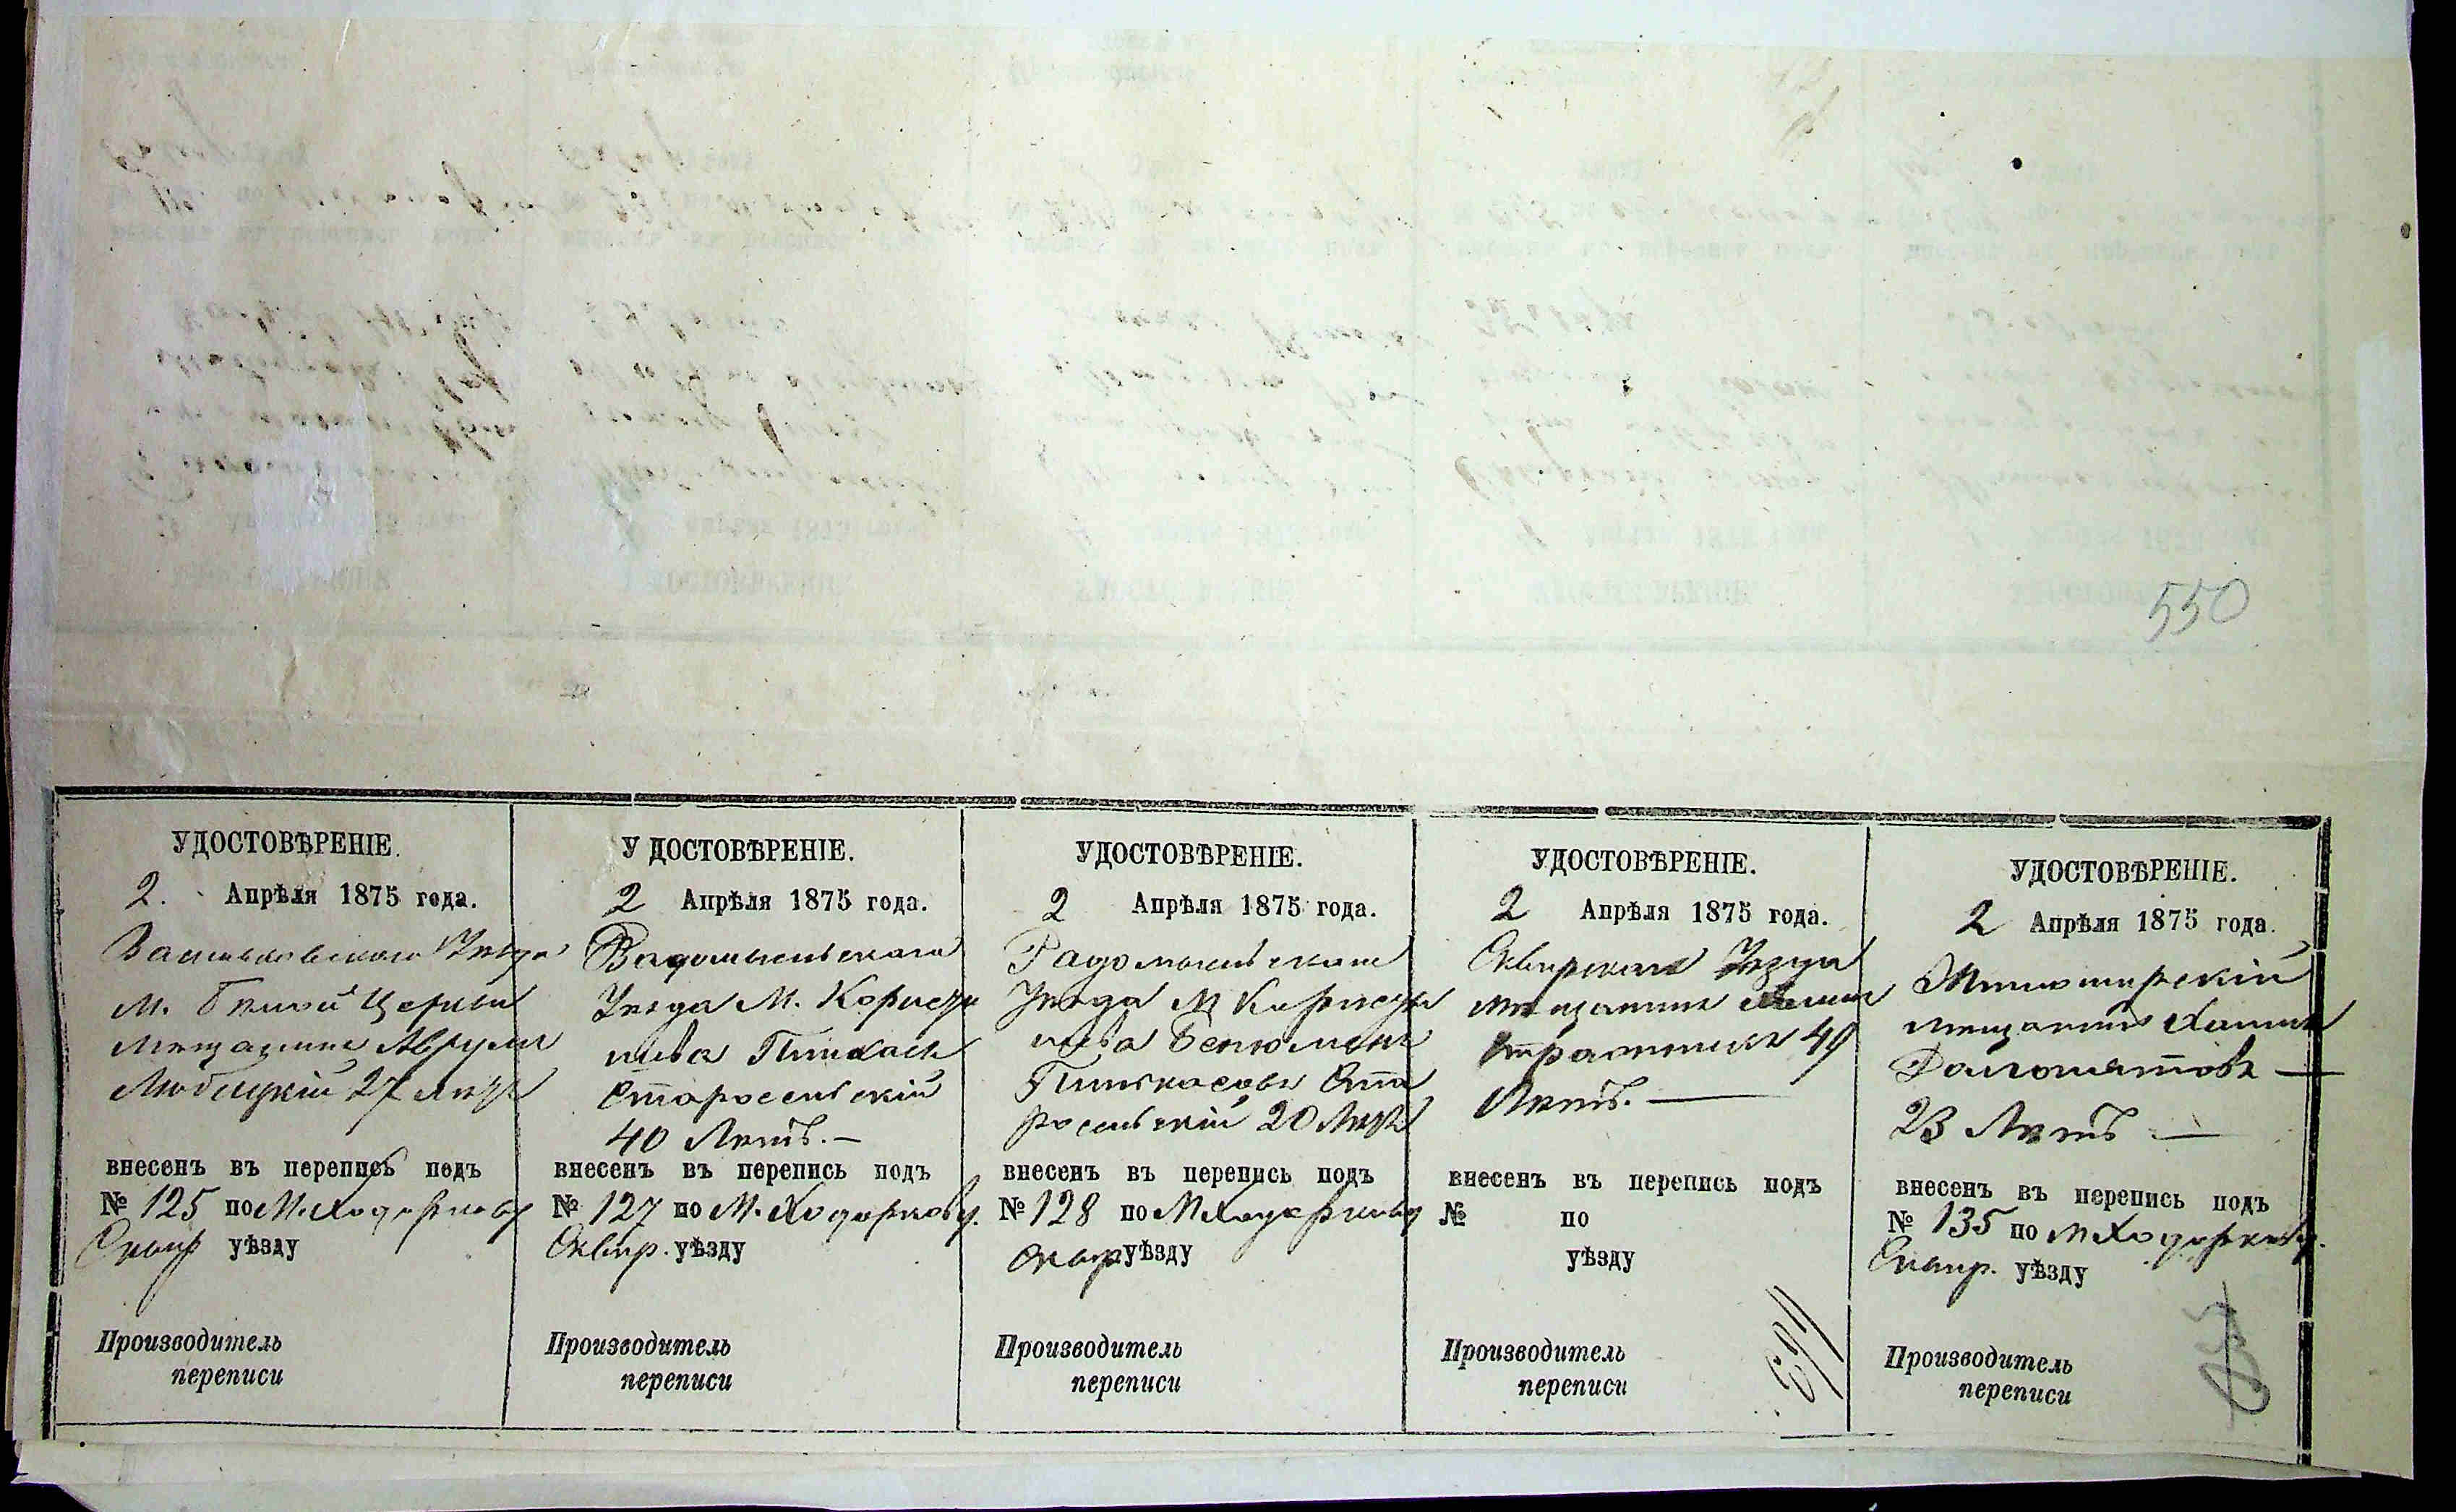 550
УДОСТОВѢРЕНІЕ.
2. Апрѣля 1875 года.
Васильковскаго Уезда
М. Белой Церкви
мещанинъ Аврумъ
Любецкій 27 летъ
внесенъ въ перепись подъ
№ 125 по М. Ходоркову
Сквир уѣзду
Производитель
переписи
УДОСТОВѢРЕНІЕ.
2 Апрѣля 1875 года.
Радомысльскаго
Уезда М. Корнсти
шева Пинхасъ
Старосельскій
40 Летъ. —
внесенъ въ перепись подъ
№ 127 по М. Ходоркову.
Сквир. уѣзду
Производитель
переписи
УДОСТОВѢРЕНІЕ.
2 Апрѣля 1875 года.
Радомысльскаго
Уезда М
шева Бенюминъ
Пинькасовъ Ста
росельскій 20 Летъ
внесенъ въ перепись подъ
№ 128 по М Ходоркову
Сквир уѣзду
Производитель
переписи
УДОСТОВѢРЕНІЕ.
2 Апрѣля 1875 года.
Сквирскаго Уезда
мещанинъ
49
Летъ. —
внесенъ въ перепись подъ
№ по
уѣзду
Производитель
переписи
УДОСТОВѢРЕНІЕ.
2 Апрѣля 1875 года.
Житомирскій
мещанинъ Хаимъ
—
23 Летъ —
внесенъ въ перепись подъ
№ 135 по М Ходоркову.
Сквир. уѣзду
Производитель
переписи